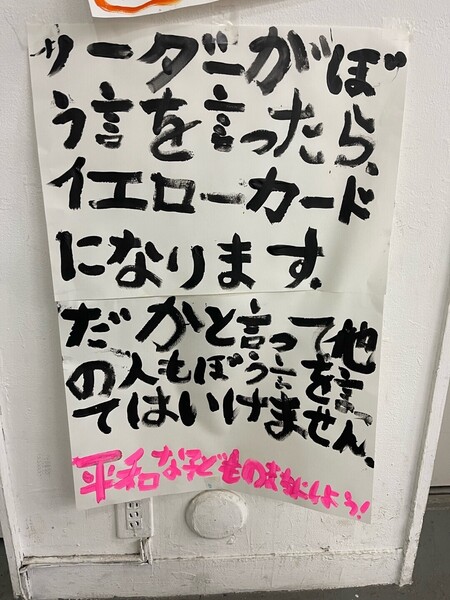 リーダーがぼ
う言を言ったら、
イエローカード
になります。
だかと言って他
の人もぼう言を言っ
てはいけません。
平和な子どものまちにしよう!